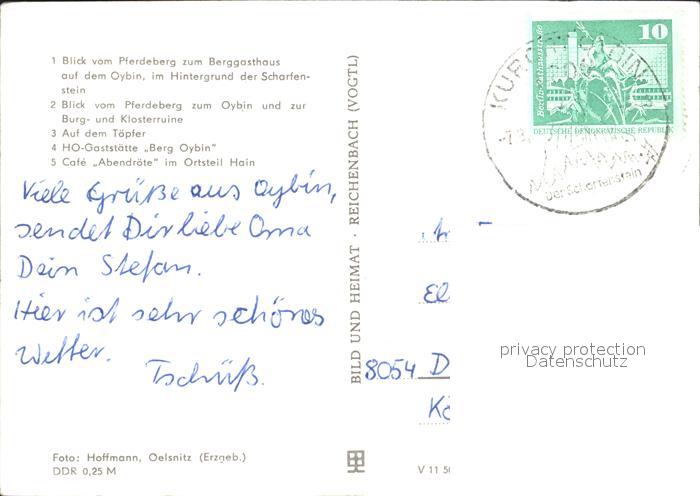 1 Blick vom Pferdeberg zum Berggasthaus
auf dem Oybin, im Hintergrund der Scharfen-
stein
2 Blick vom Pferdeberg zum Oybin und zur
Burg- und Klosterruine
3 Auf dem Töpfer
4 HO-Gaststätte „Berg Oybin"
5 Café „Abendröte" im Ortsteil Hain
Viele Grüße aus Oybin,
sendet Dir liebe Oma
Dein Stefan.
Hier ist sehr schönes
Wetter.
Tschüß.
Foto: Hoffmann, Oelsnitz (Erzgeb.)
DDR 0,25 M
BILD UND HEIMAT · REICHENBACH (VOGTL)
V 11 50
10
Berlin-Rathausstraße
DEUTSCHE DEMOKRATISCHE REPUBLIK
KURORT OYBIN
Der Scharfenstein
8054 D
privacy protection
Datenschutz